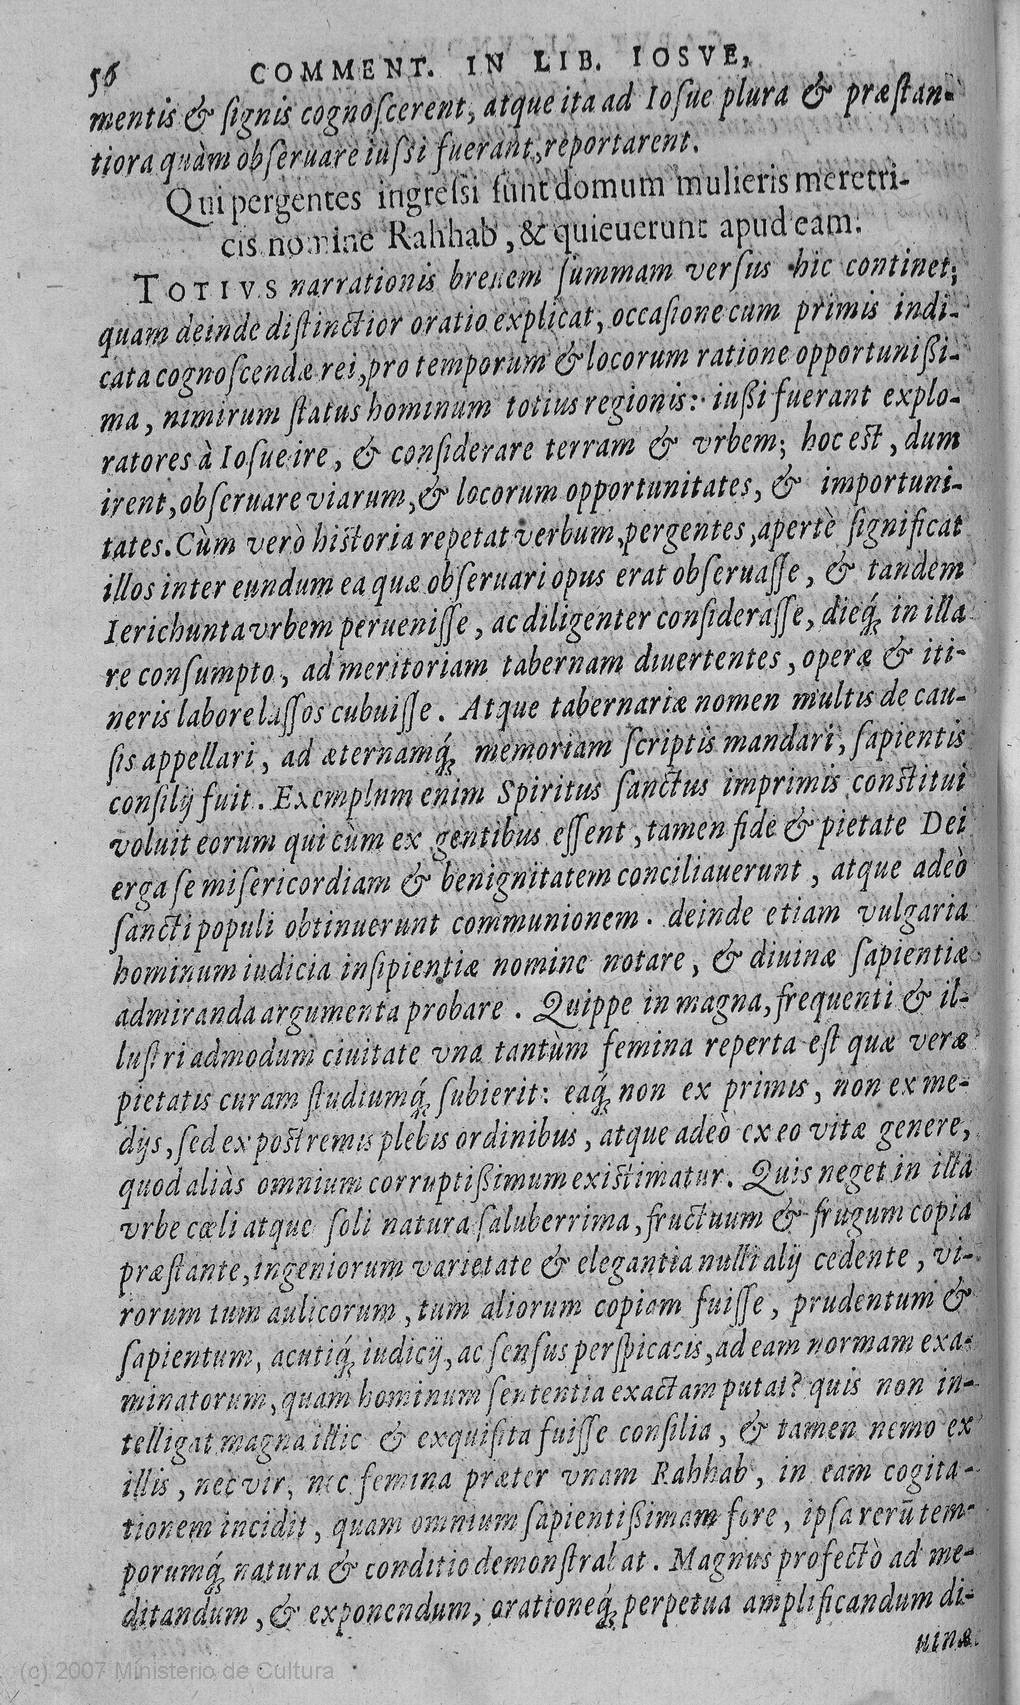 56 COMMENT. IN LIB. IOSVE,
mentis & ſignis cognoſcerent, atque ita ad Ioſue plura & præſtan-
tiora quàm obſeruare iuſſi fuerant, reportarent.
Qui pergentes ingreſſi ſunt domum mulieris meretri-
cis nomine Rahhab, & quieuerunt apud eam.
TOTIVS narrationis breuem ſummam verſus hic continet;
quam deinde diſtinctior oratio explicat, occaſione cum primis indi-
cata cognoſcendæ rei, pro temporum & locorum ratione opportunißi-
ma, nimirum ſtatus hominum totius regionis: iußi fuerant explo-
ratores à Ioſue ire, & conſiderare terram & vrbem; hoc eſt, dum
irent, obſeruare viarum, & locorum opportunitates, & importuni-
tates. Cùm verò hiſtoria repetat verbum, pergentes, apertè ſignificat
illos inter eundum ea quæ obſeruari opus erat obſeruaſſe, & tandem
Ierichunta vrbem perueniſſe, ac diligenter conſideraſſe, dieq́; in illa
re conſumpto, ad meritoriam tabernam diuertentes, operæ & iti-
neris labore laſſos cubuiſſe. Atque tabernariæ nomen multis de cau-
ſis appellari, ad æternamq́; memoriam ſcriptis mandari, ſapientis
conſilij fuit. Exemplum enim Spiritus ſanctus imprimis conſtitui
voluit eorum qui cùm ex gentibus eſſent, tamen fide & pietate Dei
erga ſe miſericordiam & benignitatem conciliauerunt, atque adeò
ſancti populi obtinuerunt communionem. deinde etiam vulgaria
hominum iudicia inſipientiæ nomine notare, & diuinæ ſapientiæ
admiranda argumenta probare. Quippe in magna, frequenti & il-
luſtri admodum ciuitate vna tantùm femina reperta eſt quæ veræ
pietatis curam ſtudiumq́; ſubierit: eaq́; non ex primis, non ex me-
dijs, ſed ex poſtremis plebis ordinibus, atque adeò ex eo vitæ genere,
quod aliàs omnium corruptißimum exiſtimatur. Quis neget in illa
vrbe cæli atque ſoli natura ſaluberrima, fructuum & frugum copia
præſtante, ingeniorum varietate & elegantia nulli alij cedente, vi-
rorum tum aulicorum, tum aliorum copiam fuiſſe, prudentum &
ſapientum, acutiq́; iudicij, ac ſenſus perſpicacis, ad eam normam exa-
minatorum, quam hominum ſententia exactam putat? quis non in-
telligat magna illic & exquiſita fuiſſe conſilia, & tamen nemo ex
illis, nec vir, nec femina præter vnam Rahhab, in eam cogita-
tionem incidit, quam omnium ſapientißimam fore, ipſa rerũ tem-
porumq́; natura & conditio demonſtrabat. Magnus profectò ad me-
ditandum, & exponendum, orationeq́; perpetua amplificandum di-
uinæ
(c) 2007 Ministerio de Cultura